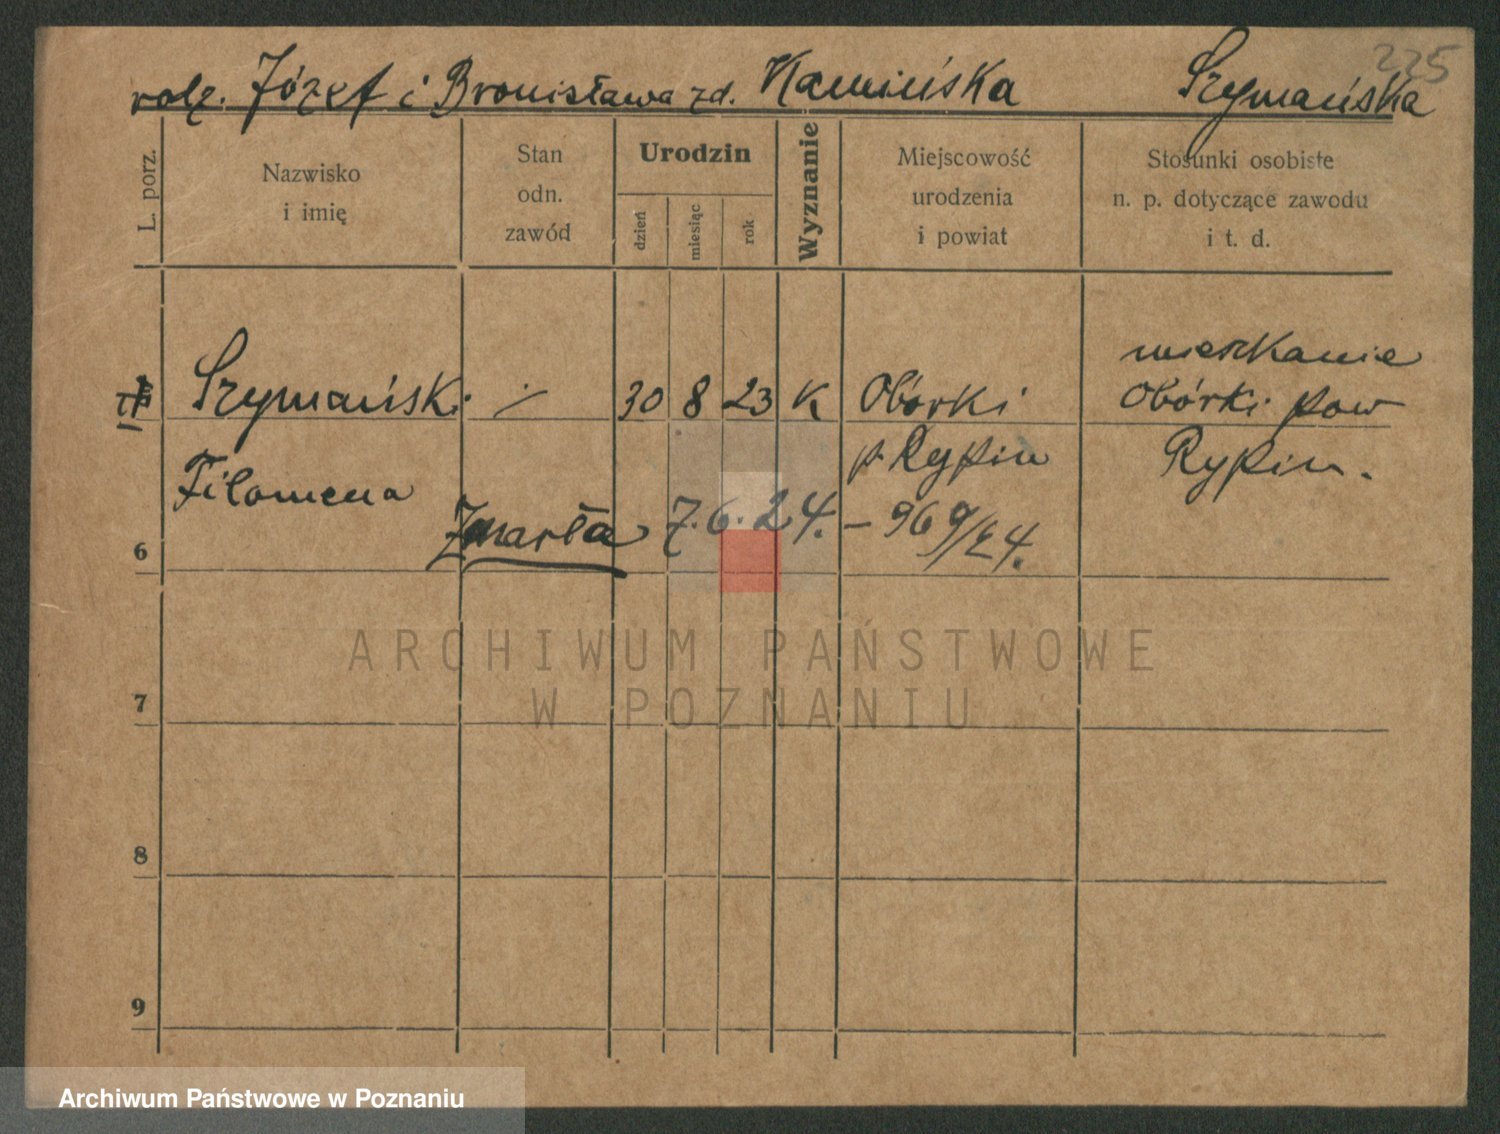 225
rolz. Józef i Bronisława zd. Kamińska Szymańska
L. porz.
Nazwisko
i imię
Stan
odn.
zawód
Urodzin
dzień
miesiąc
rok
Wyznanie
Miejscowość
urodzenia
i powiat
Stosunki osobiste
n. p. dotyczące zawodu
i t. d.
mieszkanie
Szymański 30 8 23 K Obórki Obórki pow
Filomena p. Rypin Rypin.
Zmarła 7.6.24. – 969/24.
6
7
8
9
ARCHIWUM PAŃSTWOWE
W POZNANIU
Archiwum Państwowe w Poznaniu